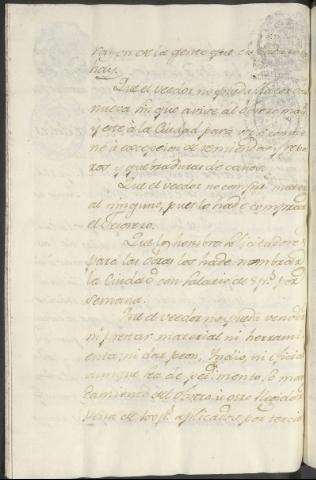 razon de la gente que
hay.
Que el veedor no pueda hacer
nueva sin que avise al obrero mar
y este à la Ciudad, para
ne à excepcion de remiendar, y repa
ros y quebraduras de caños.
Que el veedor no compre materi
al ninguno, pues lo ha de comprar
el Thesorero.
Que los hombres
para las obras los ha de nombrar
la Ciudad con salario de ps. por
semana.
Que el veedor no pueda vender
ni prestar material ni herrami
enta; ni dar peon, Indio, ni oficial
aunque sea de pedimento, ò man
damiento del obrero, ù otro Regidor
pena de 100 ps. aplicados por tercia